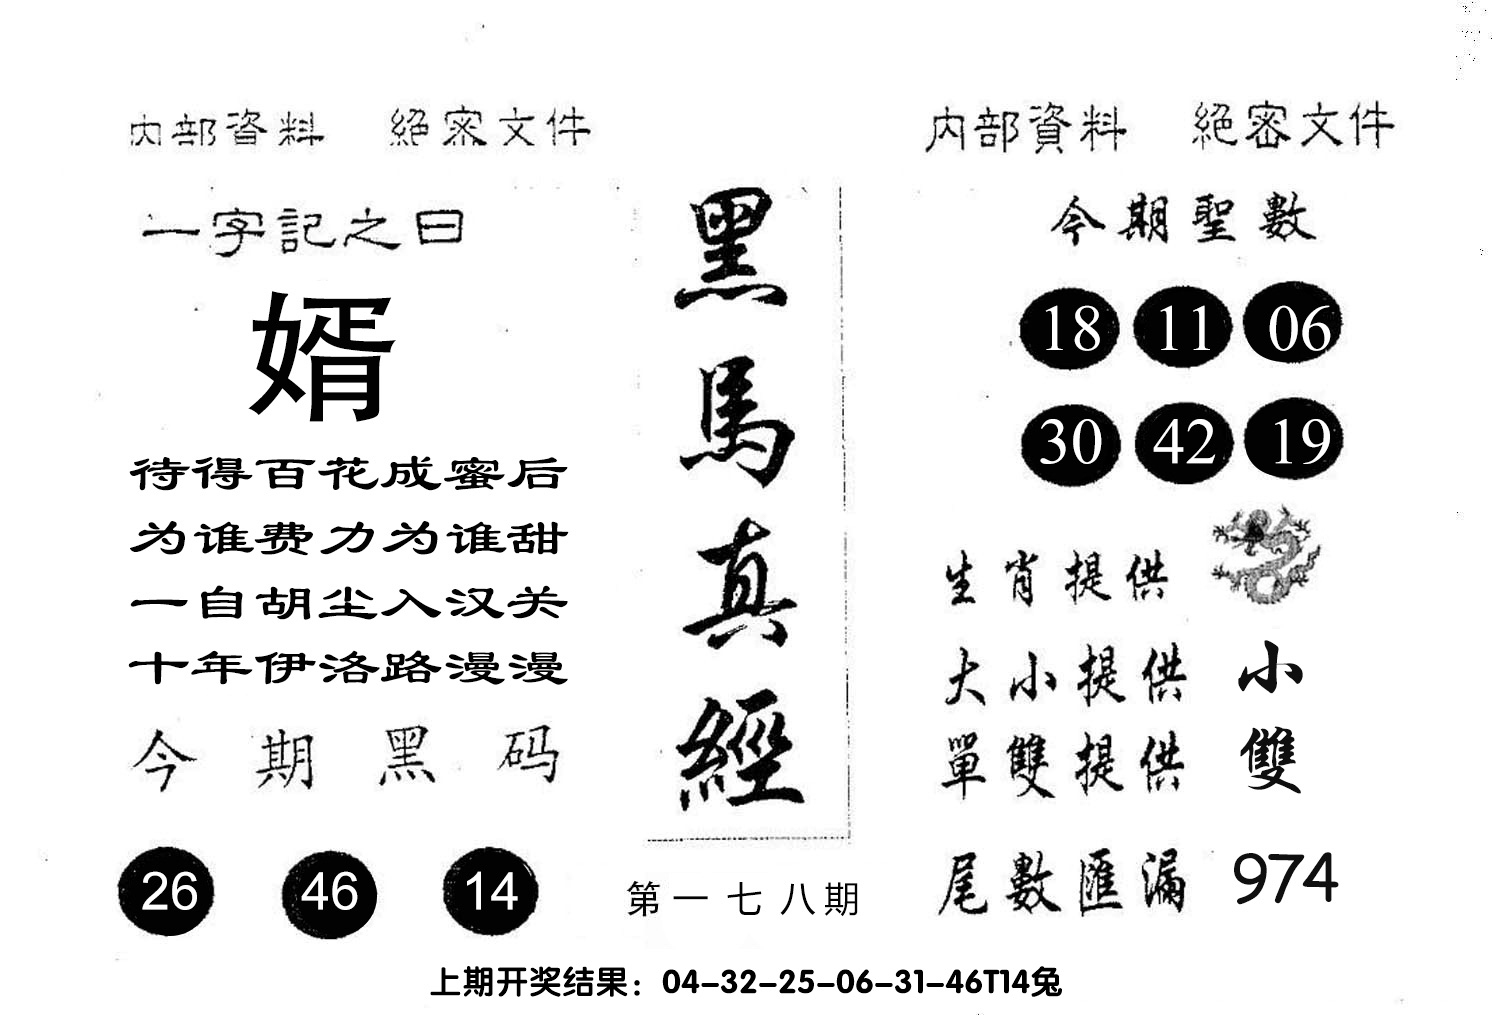 内部資料 絕密文件
一字記之曰
婿
待得百花成蜜后
为谁费力为谁甜
一自胡尘入汉关
十年伊洛路漫漫
今期黑码
26 46 14
黑馬真經
第一七八期
内部資料 絕密文件
今期聖數
18 11 06
30 42 19
生肖提供
大小提供 小
單雙提供 雙
尾數匯漏 974
上期开奖结果：04-32-25-06-31-46T14兔